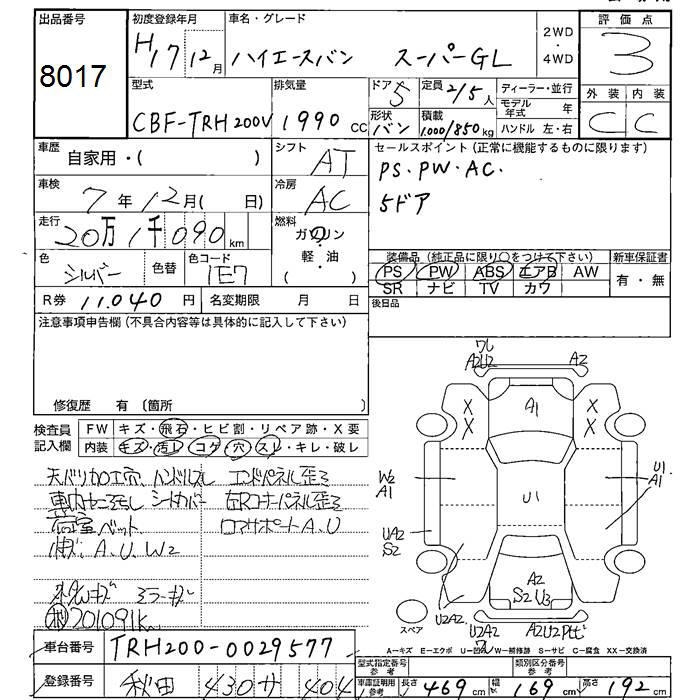 出品番号
8017
初度登録年月
H17 12月
車名・グレード
ハイエースバン スーパーGL
2WD
・
4WD
評価点
3
外装 内装
C C
型式
CBF-TRH200V
排気量
1990 CC
ドア
5
形状
バン
定員 2/5人
積載 1,000/850kg
ディーラー・並行
モデル年式 年
ハンドル 左・右
車歴
自家用・( )
シフト
AT
車検
7年12月( 日)
冷房
AC
走行
20万1千090km
燃料
ガソリン
・
軽・油
( )
色
シルバー
色替
色コード
1E7
R券 11,040円
名変期限 月 日
セールスポイント(正常に機能するものに限ります)
PS・PW・AC・
5ドア
装備品(純正品に限り○をつけて下さい)
PS PW ABS エアB AW
SR ナビ TV カワ
新車保証書
有・無
後日品
注意事項申告欄(不具合内容等は具体的に記入して下さい)
修復歴 有〔箇所 〕
検査員記入欄
FW キズ・飛石・ヒビ割・リペア跡・X要
内装 キズ・汚レ・コゲ・穴・スレ・キレ・破レ
天バリ加工穴、ハンドルスレ エンドパネル歪ミ
シートカバー 左Rコーナーパネル歪ミ
荷室ベット ロアサポートA、U
A、U、W2
ミラーキズ
201091k
ワレ
A2U2 A2
A1
X X
X X
W2
A1
U1
U1
A1
UA2
S2
A2
S2 U3
U2A2 U2
スペア
U2A2 A2U2
ワレ
A=キズ E=エクボ U=凹 W=補修跡 S=サビ C=腐食 XX=交換済
車台番号 TRH200-0029577
登録番号 秋田 430 サ 404
型式指定番号 参考
類別区分番号 参考
車庫証明用 参考
長さ 469cm 幅 169cm 高さ 192cm